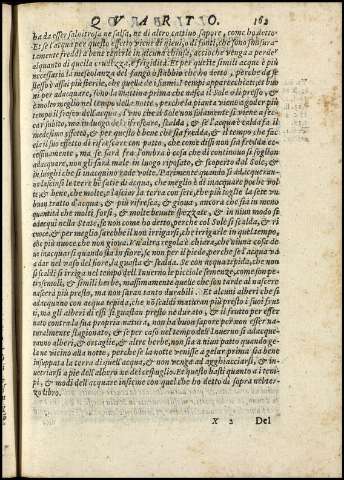 QVARTO. 163
ha da esser salnitrosa ne salsa, ne di altro cattiuo sapore, come ho detto.
Et se l'acqua per questo effetto viene di pleui, o di fonti, che sono
mente freddi a bene tenerle in alcuna chiusa, accioche venga a perder
alquanto di quella crudezza, e frigidità. Et per quelle simili acque è più
necessario la mescolanza del fango o stabbio che ho detto, perche da se
stesse assai più sterile, che quelle de i fiumi. I tempi apparecchiati, et buo
ni per adacquare, sono la mattina prima che nasca il Sole o li presso, &
è molto meglio nel tempo della notte, perche la pianta viene a goder più
tempo il fresco dell'acqua, & non che il Sole non solamente si viene a sec
car subito, ma in luogo di rifrescare, scalda, & se l'acqua è calda fa il
medesimo effetto, & per questo è bene che sia fredda, & il tempo che fac
cia il suo effetto di rifrescare con patto, che come dissi non sia fredda ec
cessiuamente, ma se farà fra l'ombra ò cosa che di continuo si soglion
adacquare, non gli farà male in luogo riposato, & scoperto dal Sole, &
in luoghi che si inacquino rade volte. Parimente quando si adacqueran
no lascinsi le terre ben satie di acqua, che meglio è di inacquare poche vol
te & bene, che molte, & lascisi la terra con sete, che più toglie la sete vn
buon tratto d'acqua, & più rifresca, & gioua, ancora che sia in meno
quantità che molti sorsi, & molte beuute spezzate, & in niun modo si
adacqui nella State, se non come ho detto, perche col Sole si scalda, & ri
cuoce, & per meglio sarebbe il non irrigarsi, che irrigarle in quel tempo,
che più nuoce, che non gioua. Vn'altra regola è chiara, che niuna cosa de
ue inacquarsi quando sta in fiore, se non per il piede, perche se l'acqua và
a dar nel vaso del fiore, la guasta & scalda. Se con acqua tepida, che non
si scaldi si irriga nel tempo dell'Inuerno le picciole semenze, come son pe
tresemoli, & simili herbe, massimamente quelle che son tarde al nascere
nasceran più presto, ma non saran tanto durabili. Et alcuni alberi che si
adacquino con acqua tepida, che nõ scaldi maturan più presto i suoi frut
ti, ma gli alberi di essi si guastan presto ne durano, & il frutto per esser
nato contra la sua propria natura, non ha buon sapore per non esser na
turalmente stagionato, & se per caso nel tempo dell'Inuerno si adacque-
ranno alberi, & ortaglie, & altre herbe, non sia a niun patto quando ge-
la ne vicino alla notte, perche se la notte venisse a gelar prima sia bene
insuppata la terra di quell'acqua, & non venga ad agghiacciarsi, & in
uetriarsi a pie dell'albero ne del cespuglio. Et questo basti quanto a i tem
pi, & modi dell'acquare insieme con quel che ho detto di sopra nel ter-
zo libro.
X 2 Del